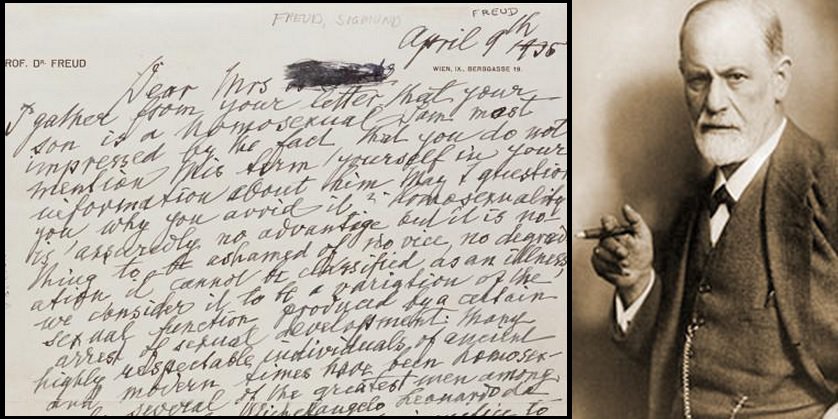 FREUD, SIGMUND
FREUD
April 9th 1935
PROF. DR FREUD
WIEN, IX., BERGGASSE 19.
Dear Mrs
I gather from your letter that your
son is a homosexual. I am most
impressed by the fact that you do not
mention this term yourself in your
information about him. May I question
you why you avoid it? Homosexuality
is assuredly no advantage but it is no-
thing to be ashamed of, no vice, no degrad-
ation, it cannot be classified as an illness,
we consider it to be a variation of the
sexual function produced by a certain
arrest of sexual development. Many
highly respectable individuals of ancient
and modern times have been homosex-
several of the greatest men among
Michelangelo, Leonardo da
to